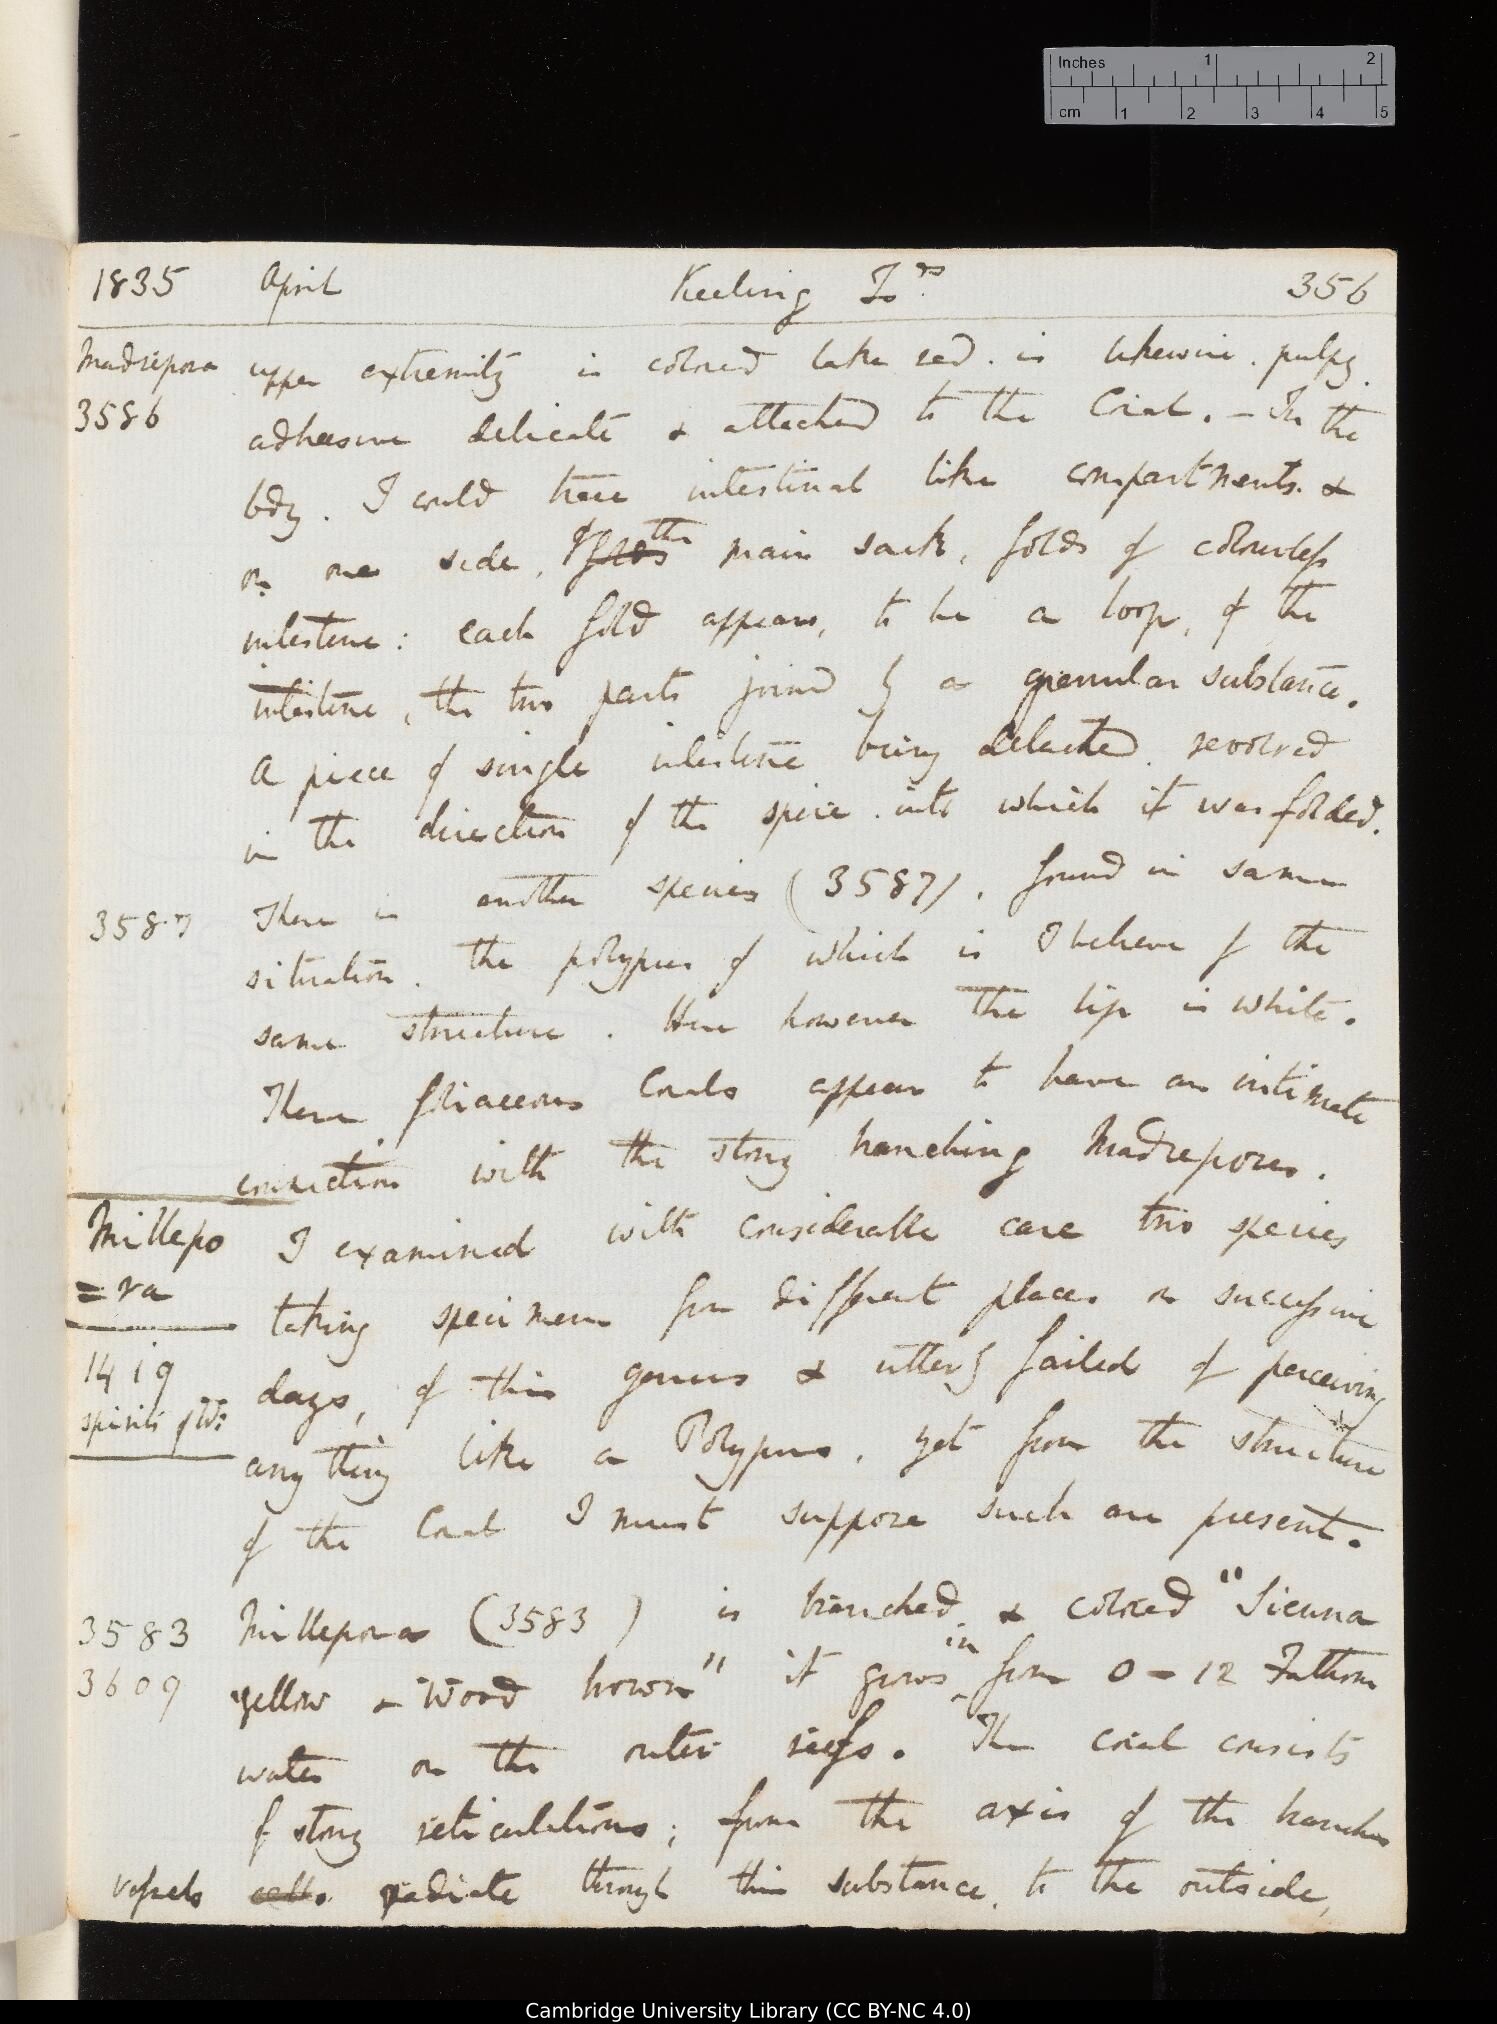 Inches 1 2
cm 1 2 3 4 5
1835 April Keeling Is.ds 356
Madrepora upper extremity is colored lake red. is likewise. pulpy.
3586 adhesive delicate & attached to the Coral. – In the
body. I could trace intestinal like compartments. &
on one side, of folds the main sack, folds of colourless
intestine: each fold appears, to be a loop, of the
intestine, the two parts joined by a granular substance.
A piece of single intestine being detached. revolved
in the direction of the spire. into which it was folded.
3587 There is another species (3587). found in same
situation. the polypus of which is I believe of the
same structure. Here however the lip is white.
These foliaceous Corals appear to have an intimate
connection with the stony branching Madrepores.
Millepo I examined with considerable care two species
=ra taking specimens from different places on successive
1419 days, of this genus & utterly failed of perceiving
spirits of W: any thing like a Polypus. yet from the structure
of the Coral I must suppose such are present.
3583 Millepora (3583) is branched & colored "Sienna
3609 yellow & Wood brown" it grows in from 0 – 12 Fathom
water on the outer reefs. The coral consists
of stony reticulations; from the axis of the branches
vessels cells. radiate through this substance. to the outside,
Cambridge University Library (CC BY-NC 4.0)